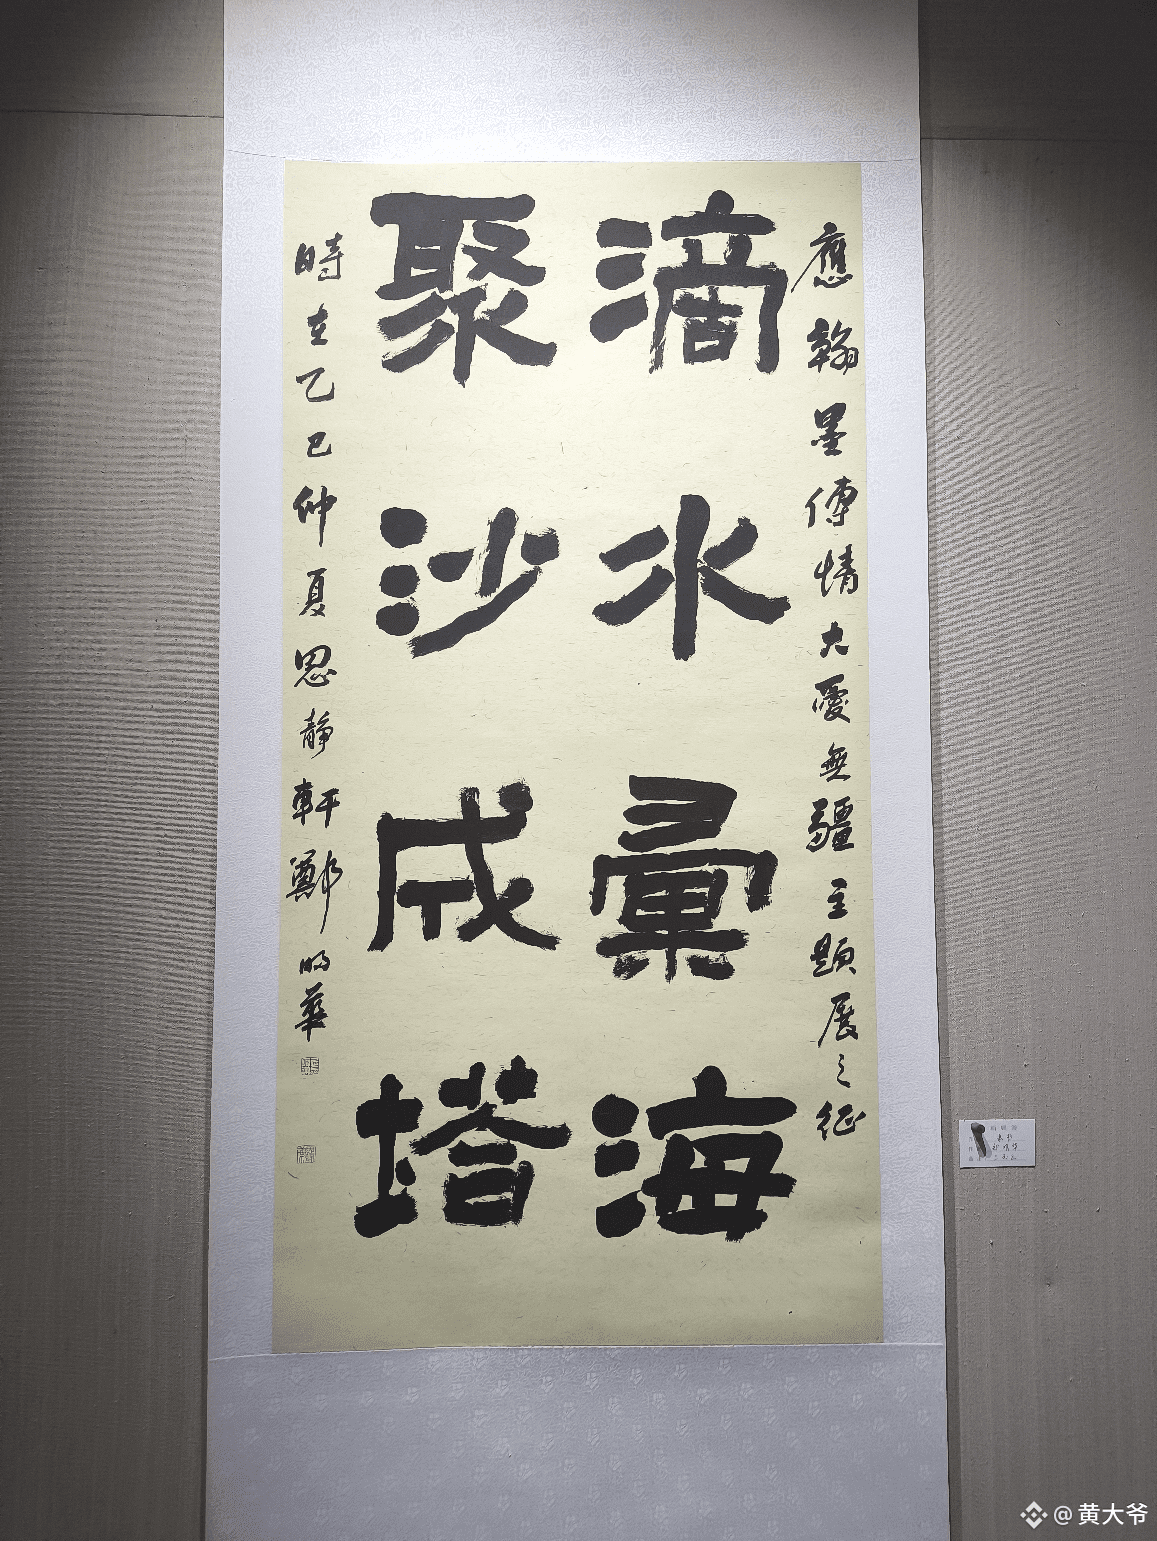 應翰墨傳情大愛無疆主題展之征
滴水彙海
聚沙成塔
時在乙巳仲夏思靜軒鄭明華
@黄大爷